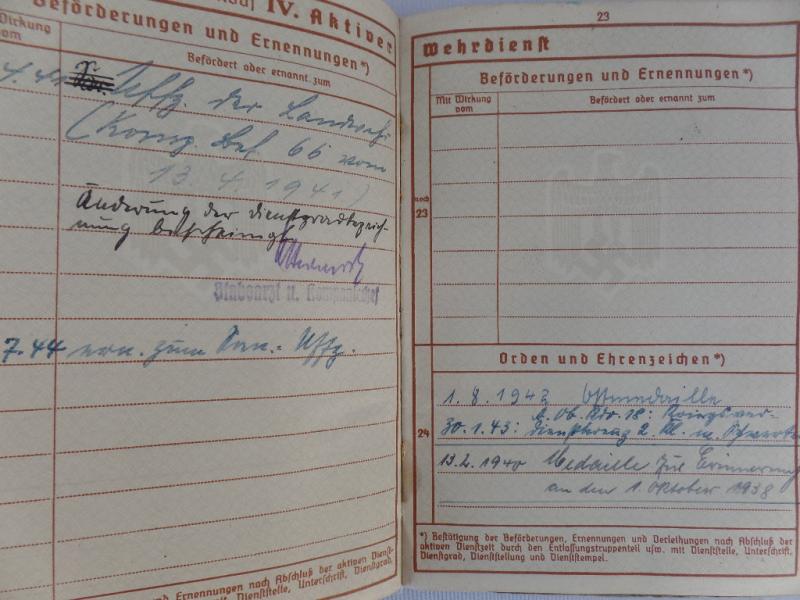 IV. Aktiver
Beförderungen und Ernennungen*)
Wirkung
vom
Befördert oder ernannt zum
Uffz. der Landwehr
66 vom
13. 4. 1941)
Änderung der Dienstgradbezeich-
nung bescheinigt
Stabsarzt u. Kompaniechef
7.44 ern. zum San.- Uffz.
und Ernennungen nach Abschluß der aktiven Dienst-
mit Dienststelle, Unterschrift, Dienstgrad,
23
Wehrdienst
Beförderungen und Ernennungen*)
Mit Wirkung
vom
Befördert oder ernannt zum
noch
23
Orden und Ehrenzeichen*)
24
1. 8. 1942 Ostmedaille
18: Kriegsver-
30.1.43: dienstkreuz 2. Kl. m. Schwerter
13.2.1940 Medaille zur Erinnerung
an den 1. Oktober 1938
*) Bestätigung der Beförderungen, Ernennungen und Verleihungen nach Abschluß der
aktiven Dienstzeit durch den Entlassungstruppenteil usw. mit Dienststelle, Unterschrift,
Dienstgrad, Dienststellung und Dienststempel.